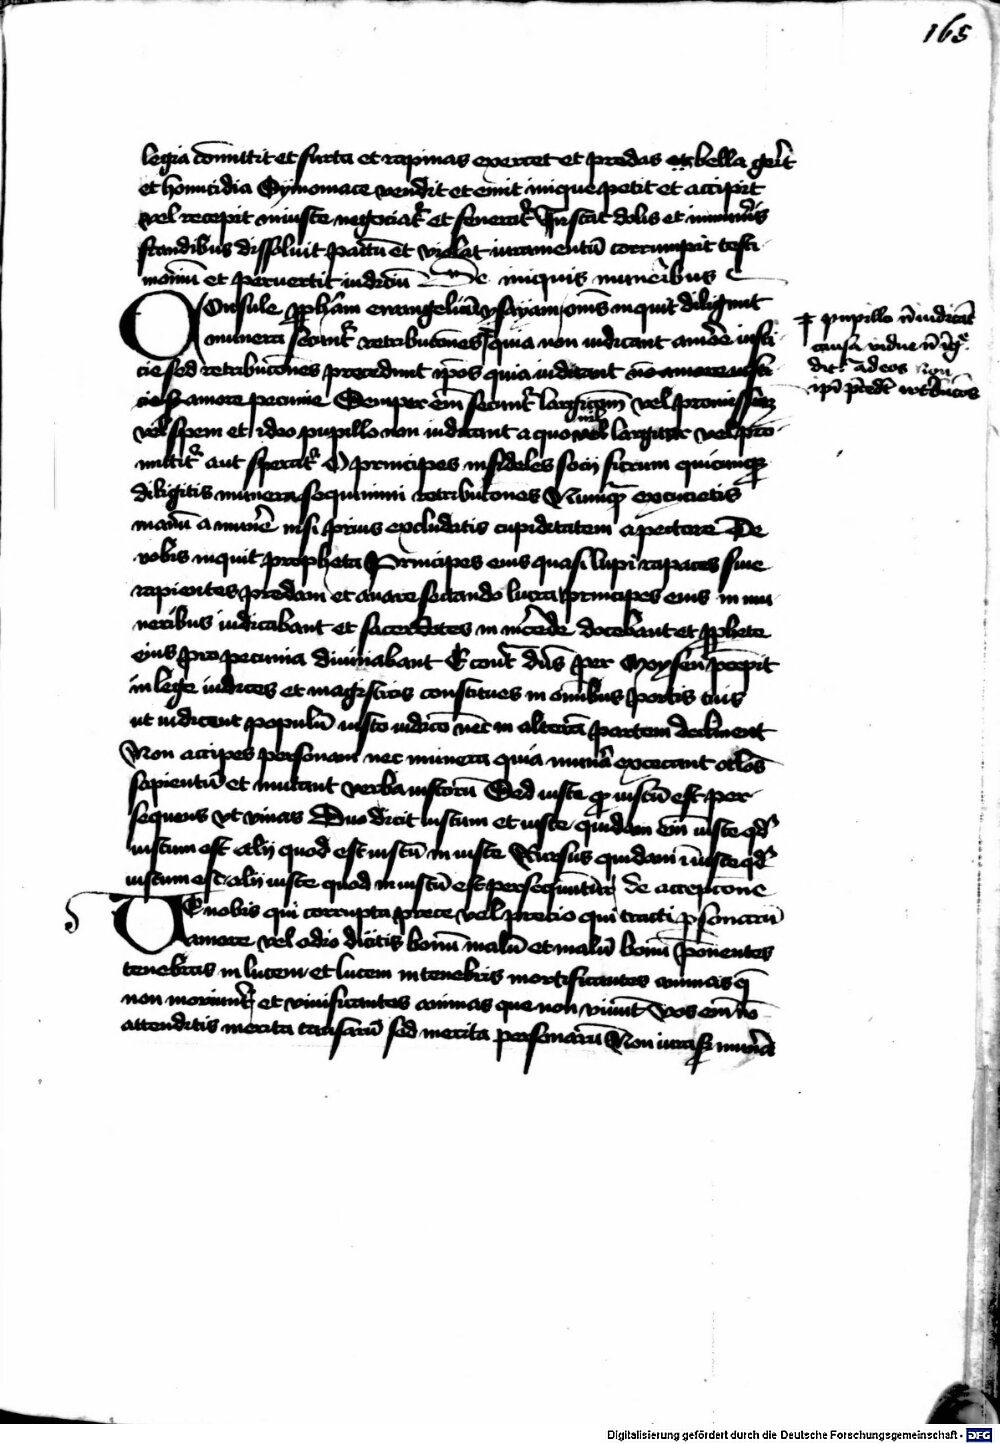 165
legia cōmittit et furta et rapinas exercet et predas et bella gerit
et homicidia Symoniace vendit et emit inique petit et accipit
vel recepit iniuste negociat᷑ et fenerat᷑ Instat dolis et
fraudibus dissoluit pactū et violat iuramentū corrumpit testi
moniū et peruertit iudiciū De iniquis muneribus
COnsule ꝓph̄am euangelicū ysayam om̄s inquit diligunt
munera secūt᷑ retribucōnes quia non iudicant amore iusti
cie sed retribucōnes precedunt ip̄os quia iudicant
cie s amore pecunie Semper em̄ secunt᷑ vel
vel spem et ideo pupillo non iudicant a quo nil vel largitur vel pro
mittit᷑ aut sperat᷑ O principes infideles socij furum quicumqꝫ
diligitis munera sequimini retribucōnes Numqᷓ excucietis
manū a munere nisi prius excludatis cupiditatem a pectore De
vobis inquit propheta Principes eius quasi lupi rapaces siue
rapientes predam et auare sectando lucra principes eius in mu
neribus iudicabant et sacerdotes in m̄cede docebant et ꝓphete
eius pro pecunia diuinabant Econt᷑ dn̄s per Moysen precepit
in lege iudices et magistros constitues in omībus portis tuis
ut iudicent populū iusto iudicō nec in alterā partem declinent
Non accipies personam nec munera quia mun̄a excecant oclōs
sapientū et mutant verba iustorū Sed iuste qᷓ iustū est per
sequeris vt viuas Duo dicit iustum et iuste quidam em̄ iuste qd̄
iustum est alij quod est iustū iniuste Rursus quidam iniuste qd̄
iustum est alij iuste quod iniustū est persequuntur de acceptōne
VE uobis qui corrupta prece vel precio qui tracti ꝑsonarū
amore vel odio dicitis bonū malū et malū bonū ponentes
tenebras in lucem et lucem in tenebris mortificantes animas q̄
non moriunt᷑ et viuificantes animas que non viuūt Vos em̄ nō
attenditis merita causarū sed merita personarū Non iura sꝫ mun̄a
pupillo n̄ iudicāt
causa vidue n̄ īgᷓ
dit᷑ ad eos Non
ip̄i